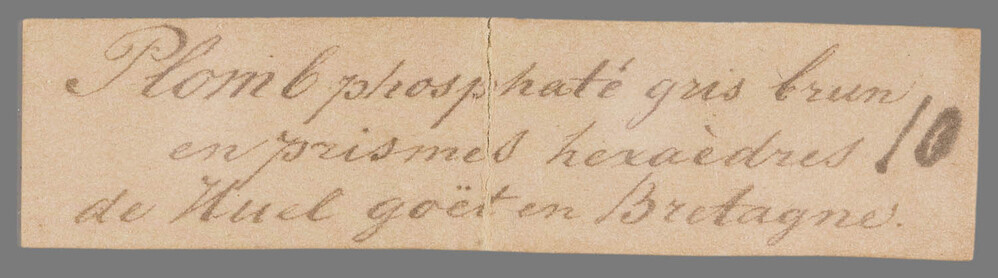 Plomb phosphaté gris brun
en prismes hexaèdres 10
de Huel goët en Bretagne.